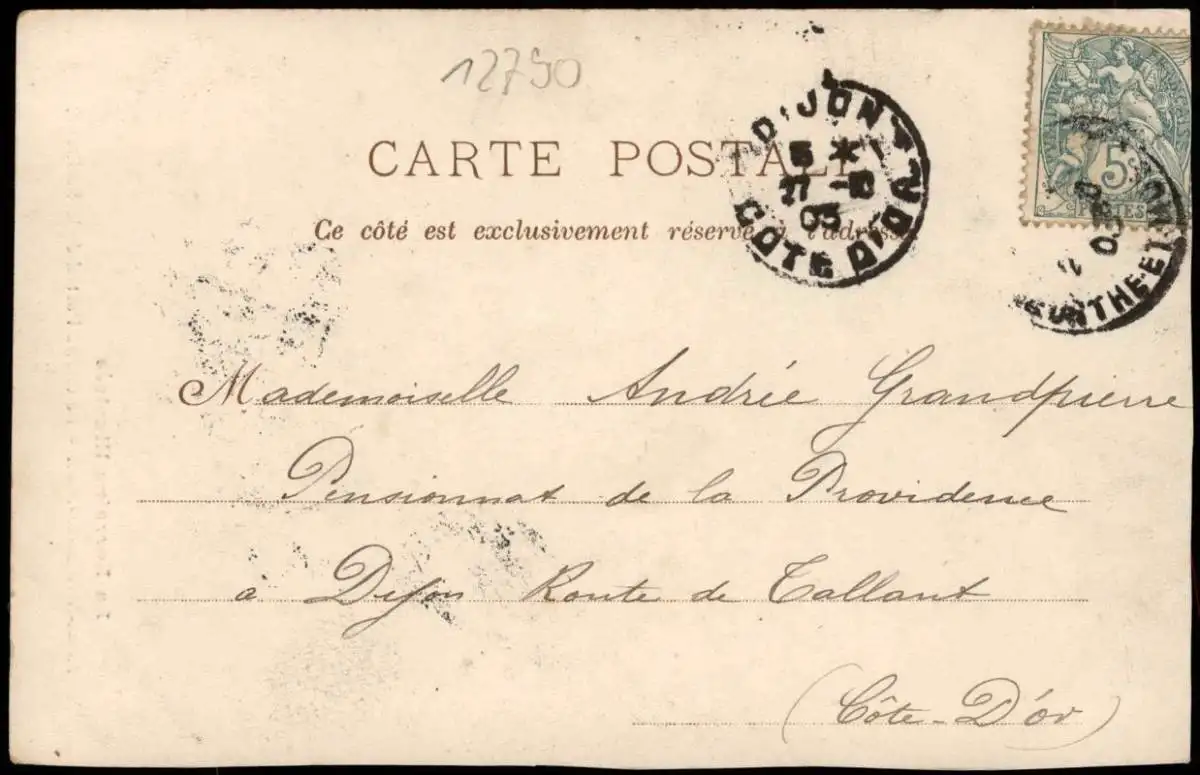 12790
CARTE POSTALE
Ce côté est exclusivement réservé à l'adresse
DIJON
27 -10
03
COTE D'OR
5c
MEURTHE-ET-MOS
03
Mademoiselle Andrée Grandpierre
Pensionnat de la Providence
a Dijon Route de Tallant
(Côte-D'or)